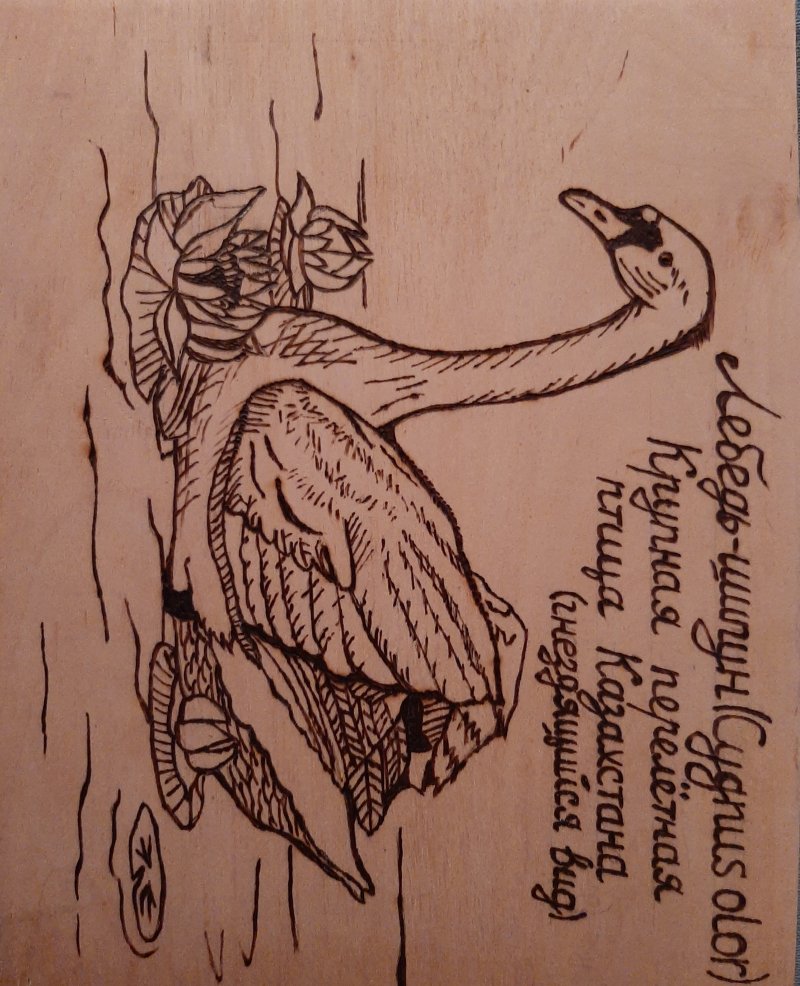 Лебедь-шипун (Cygnus olor)
Крупная перелётная
птица Казахстана
(гнездящийся вид)